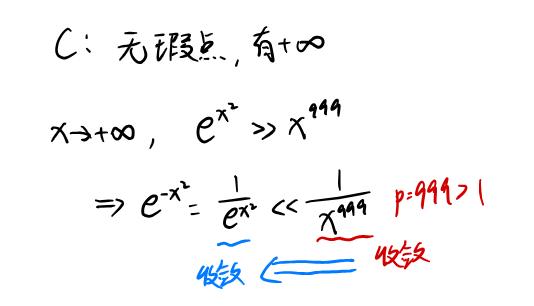 C: 无瑕点,有+∞
x→+∞, e^{x^2} >> x^{999}
⇒ e^{-x^2} = \frac{1}{e^{x^2}} << \frac{1}{x^{999}} p=999>1
收敛 ⇐ 收敛